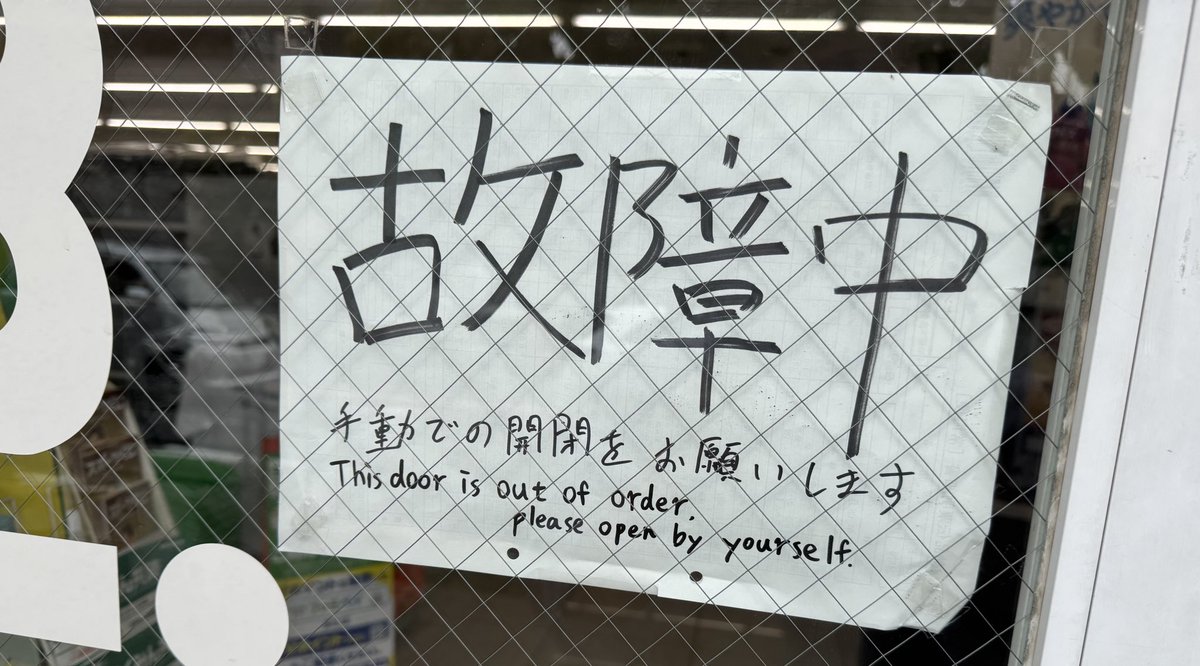 故障中
手動での開閉をお願いします
This door is out of order.
please open by yourself.